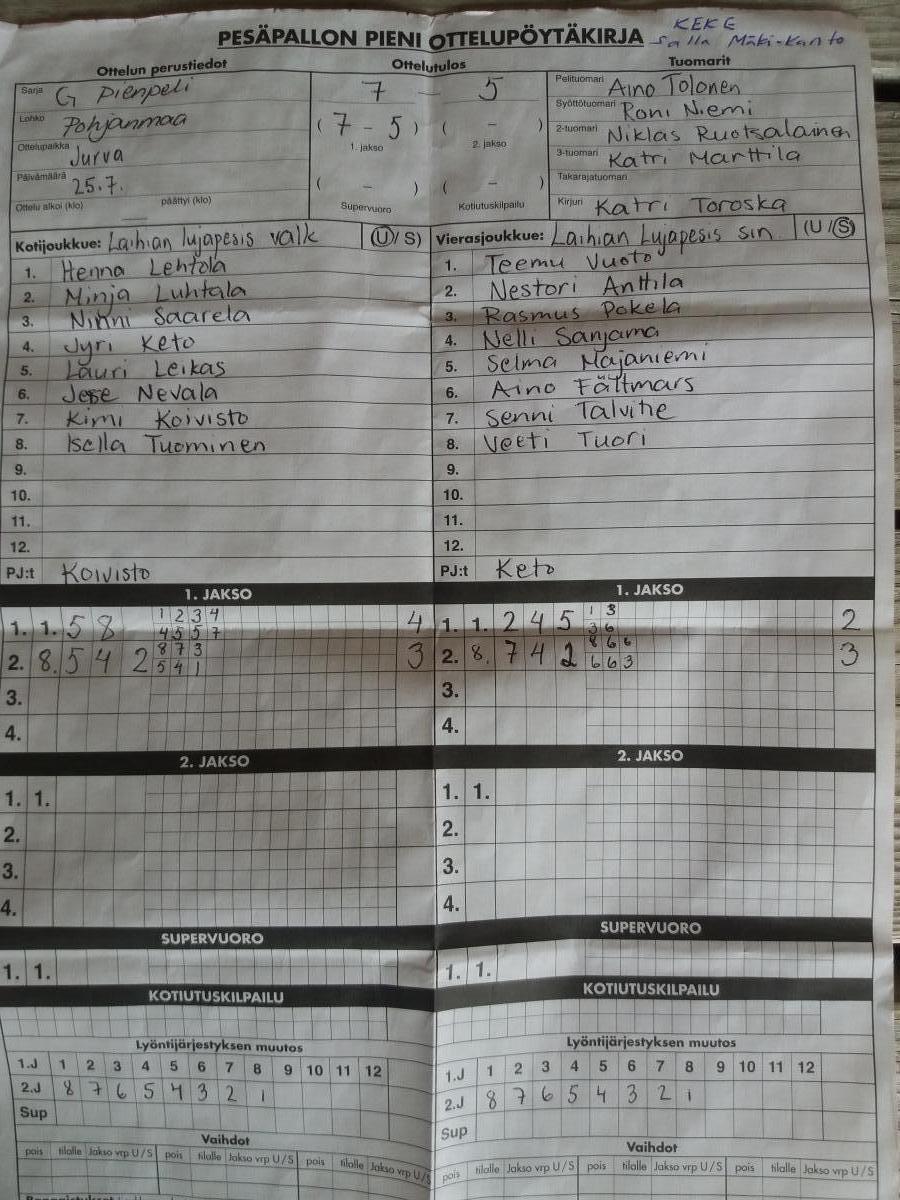 PESÄPALLON PIENI OTTELUPÖYTÄKIRJA
KEKE
Salla Mäki-Kanto
Ottelun perustiedot
Sarja G Pienpeli
Lohko Pohjanmaa
Ottelupaikka Jurva
Päivämäärä 25.7.
Ottelu alkoi (klo) päättyi (klo)
Ottelutulos
7 – 5
( 7 – 5 ) ( – )
1. jakso 2. jakso
( – ) ( – )
Supervuoro Kotiutuskilpailu
Tuomarit
Pelituomari Aino Tolonen
Syöttötuomari Roni Niemi
2-tuomari Niklas Ruotsalainen
3-tuomari Katri Marttila
Takarajatuomari
Kirjuri Katri Toroska
Kotijoukkue: Laihian lujapesis valk (U/ S)
1. Henna Lehtola
2. Minja Luhtala
3. Ninni Saarela
4. Jyri Keto
5. Lauri Leikas
6. Jesse Nevala
7. Kimi Koivisto
8. Isella Tuominen
9.
10.
11.
12.
PJ:t Koivisto
Vierasjoukkue: Laihian Lujapesis sin (U /S)
1. Teemu Vuoto
2. Nestori Anttila
3. Rasmus Pokela
4. Nelli Sanjama
5. Selma Majaniemi
6. Aino Fältmars
7. Senni Talvitie
8. Veeti Tuori
9.
10.
11.
12.
PJ:t Keto
1. JAKSO
1. 1. 5 8 1 2 3 4 4
4 5 5 7
2. 8. 5 4 2 8 7 3 3
5 4 1
3.
4.
2. JAKSO
1. 1.
2.
3.
4.
SUPERVUORO
1. 1.
KOTIUTUSKILPAILU
Lyöntijärjestyksen muutos
1.J 1 2 3 4 5 6 7 8 9 10 11 12
2.J 8 7 6 5 4 3 2 1
Sup
Vaihdot
pois tilalle Jakso vrp U / S pois tilalle Jakso vrp U / S pois tilalle Jakso vrp U / S
1. JAKSO
1. 1. 2 4 5 1 3 2
3 6
2. 8. 7 4 2 8 6 6 3
6 6 3
3.
4.
2. JAKSO
1. 1.
2.
3.
4.
SUPERVUORO
1. 1.
KOTIUTUSKILPAILU
Lyöntijärjestyksen muutos
1.J 1 2 3 4 5 6 7 8 9 10 11 12
2.J 8 7 6 5 4 3 2 1
Sup
Vaihdot
pois tilalle Jakso vrp U / S pois tilalle Jakso vrp U / S pois tilalle Jakso vrp U / S